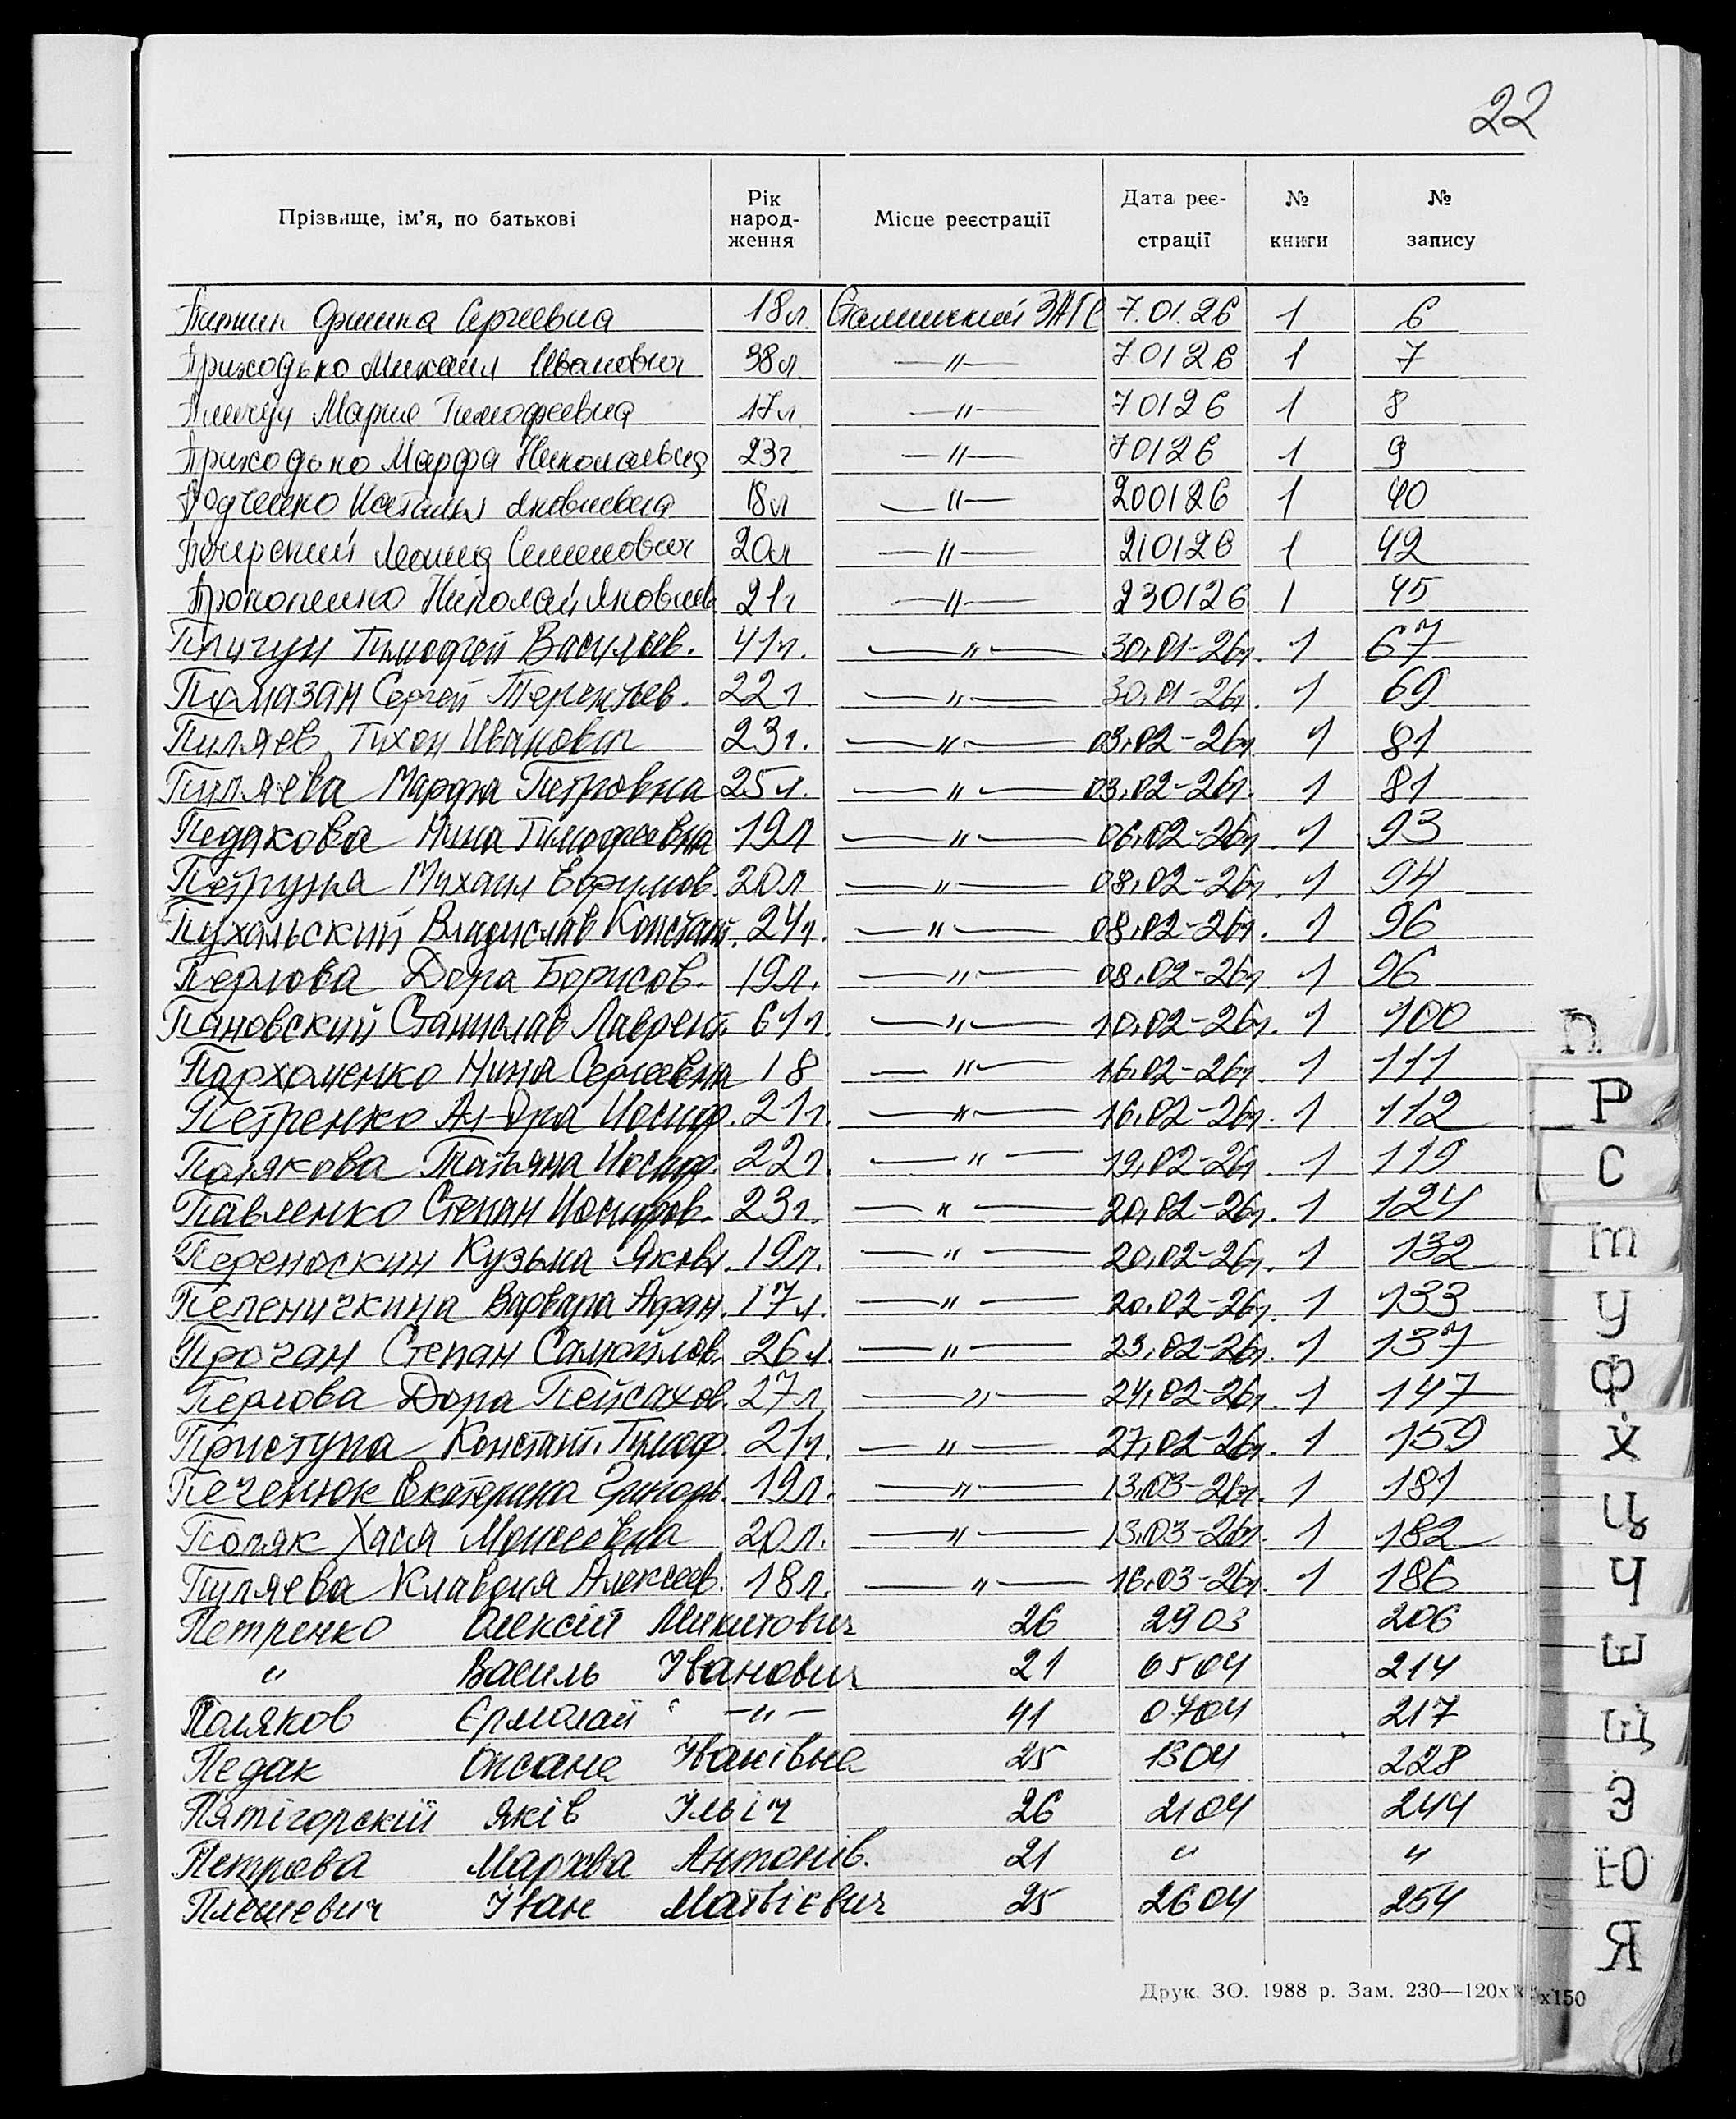 22
Прізвище, ім'я, по батькові Рік народ-ження Місце реєстрації Дата реє-страції № книги № запису
Сергеевна 18 л. Сталинский ЗАГС 7.01.26 1 6
Приходько Михаил Иванович 38 л —〃— 7 01 26 1 7
Пличун Мария Тимофеевна 17 л —〃— 7 01 26 1 8
Приходько Марфа Николаевна 23 г —〃— 7 01 26 1 9
Наталья Яковлевна 18 л —〃— 20 01 26 1 40
Леонид Семенович 20 л —〃— 21 01 26 1 42
Прокопенко Николай Яковлев 21 г —〃— 23 01 26 1 45
Пличун Тимофей Васильев. 41 г. —〃— 30.01-26 г. 1 67
Памазан Сергей Терентьев. 22 г —〃— 30.01-26 г. 1 69
Пиляев Тихон Иванович 23 г. —〃— 03.02-26 г. 1 81
Пиляева Марфа Петровна 25 л. —〃— 03.02-26 г. 1 81
Педакова Нина Тимофеевна 19 л —〃— 06.02-26 г. 1 93
Михаил Ефимов. 20 л —〃— 08.02-26 г. 1 94
Пухальский Владислав Констант. 24 г. —〃— 08.02-26 г. 1 96
Перлова Дора Борисов. 19 л. —〃— 08.02-26 г. 1 96
Пановский Станислав Лаврент. 61 г. —〃— 10.02-26 г. 1 100
Пархоменко Нина Сергеевна 18 —〃— 16.02-26 г. 1 111
Петренко Ал-дра Иосиф. 21 г. —〃— 16.02-26 г. 1 112
Полякова Татьяна Иосиф. 22 г. —〃— 19.02-26 г. 1 119
Павленко Степан Иосифов. 23 г. —〃— 20.02-26 г. 1 124
Переноскин Кузьма Яковл. 19 л. —〃— 20.02-26 г. 1 132
Пеленичкина Варвара Афан. 17 л. —〃— 20.02-26 г. 1 133
Прочан Степан Самойлов. 26 л. —〃— 23.02-26 г. 1 137
Перлова Дора Пейсахов. 27 л. —〃— 24.02-26 г. 1 147
Приступа Констант. Тимоф. 21 г. —〃— 27.02-26 г. 1 159
Печенюк Екатерина Григорь. 19 л. —〃— 13.03-26 г. 1 181
Поляк Хася Моисеевна 20 л. —〃— 13.03-26 г. 1 182
Пиляева Клавдия Алексеев. 18 л. —〃— 16.03-26 г. 1 186
Петренко Олексій Микитович 26 29 03 206
〃 Василь Іванович 21 05 04 214
Поляков Єрмолай —〃— 41 07 04 217
Педак Оксана Іванівна 25 13 04 228
Пятігорскій Яків Ільіч 26 21 04 244
Петрова Мархва Антонів. 21 〃 〃
Іван Матвієвич 25 26 04 254
П
Р
С
т
У
Ф
Х
Ц
Ч
Ш
Щ
Э
Ю
Я
Друк. ЗО. 1988 р. Зам. 230—120х х150